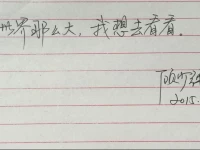 世界那么大，我想去看看。
顾少强
2015.